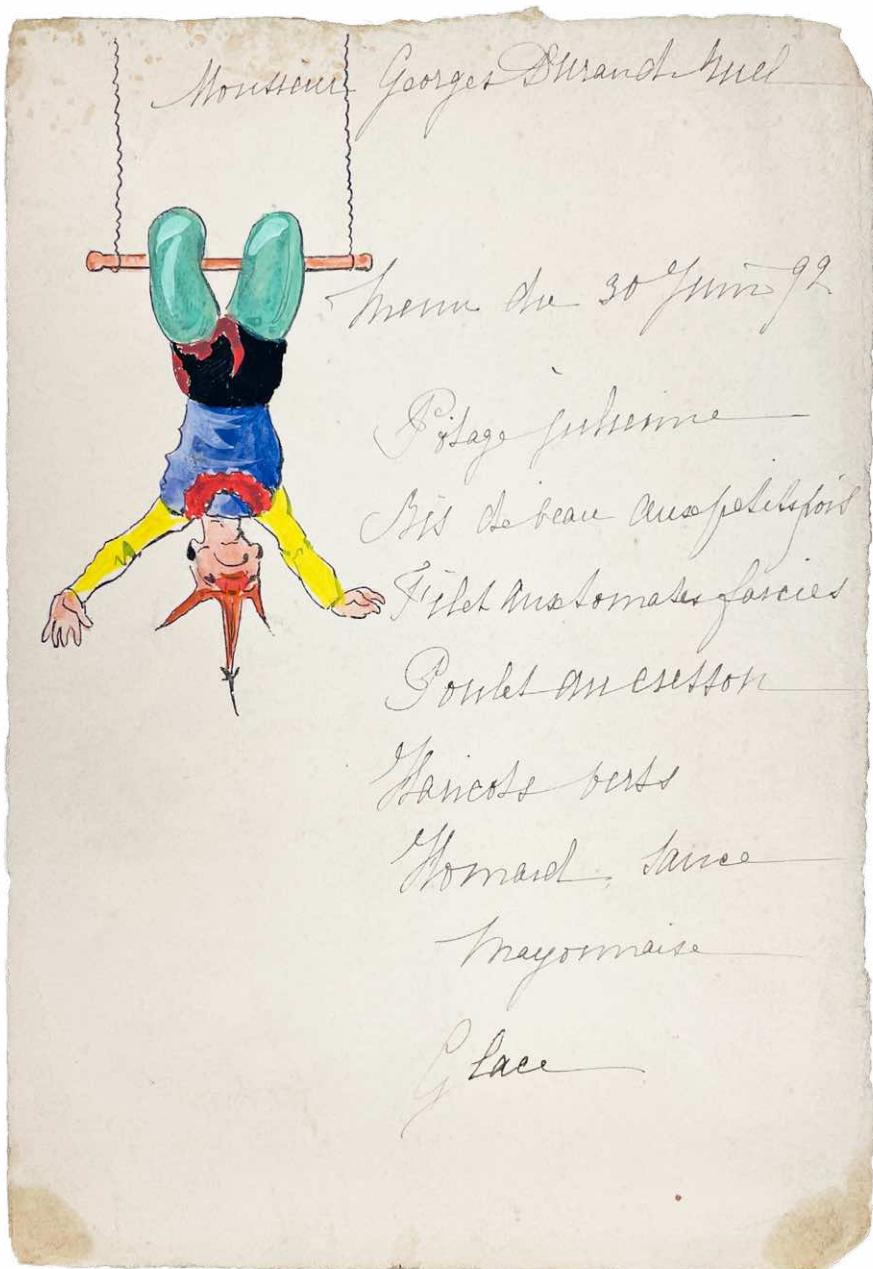 Monsieur Georges Durand-Ruel
Menu du 30 Juin 92
Potage julienne
Ris de veau aux petits pois
Filet aux tomates farcies
Poulet au cresson
Haricots verts
Homard sauce
Mayonnaise
Glace